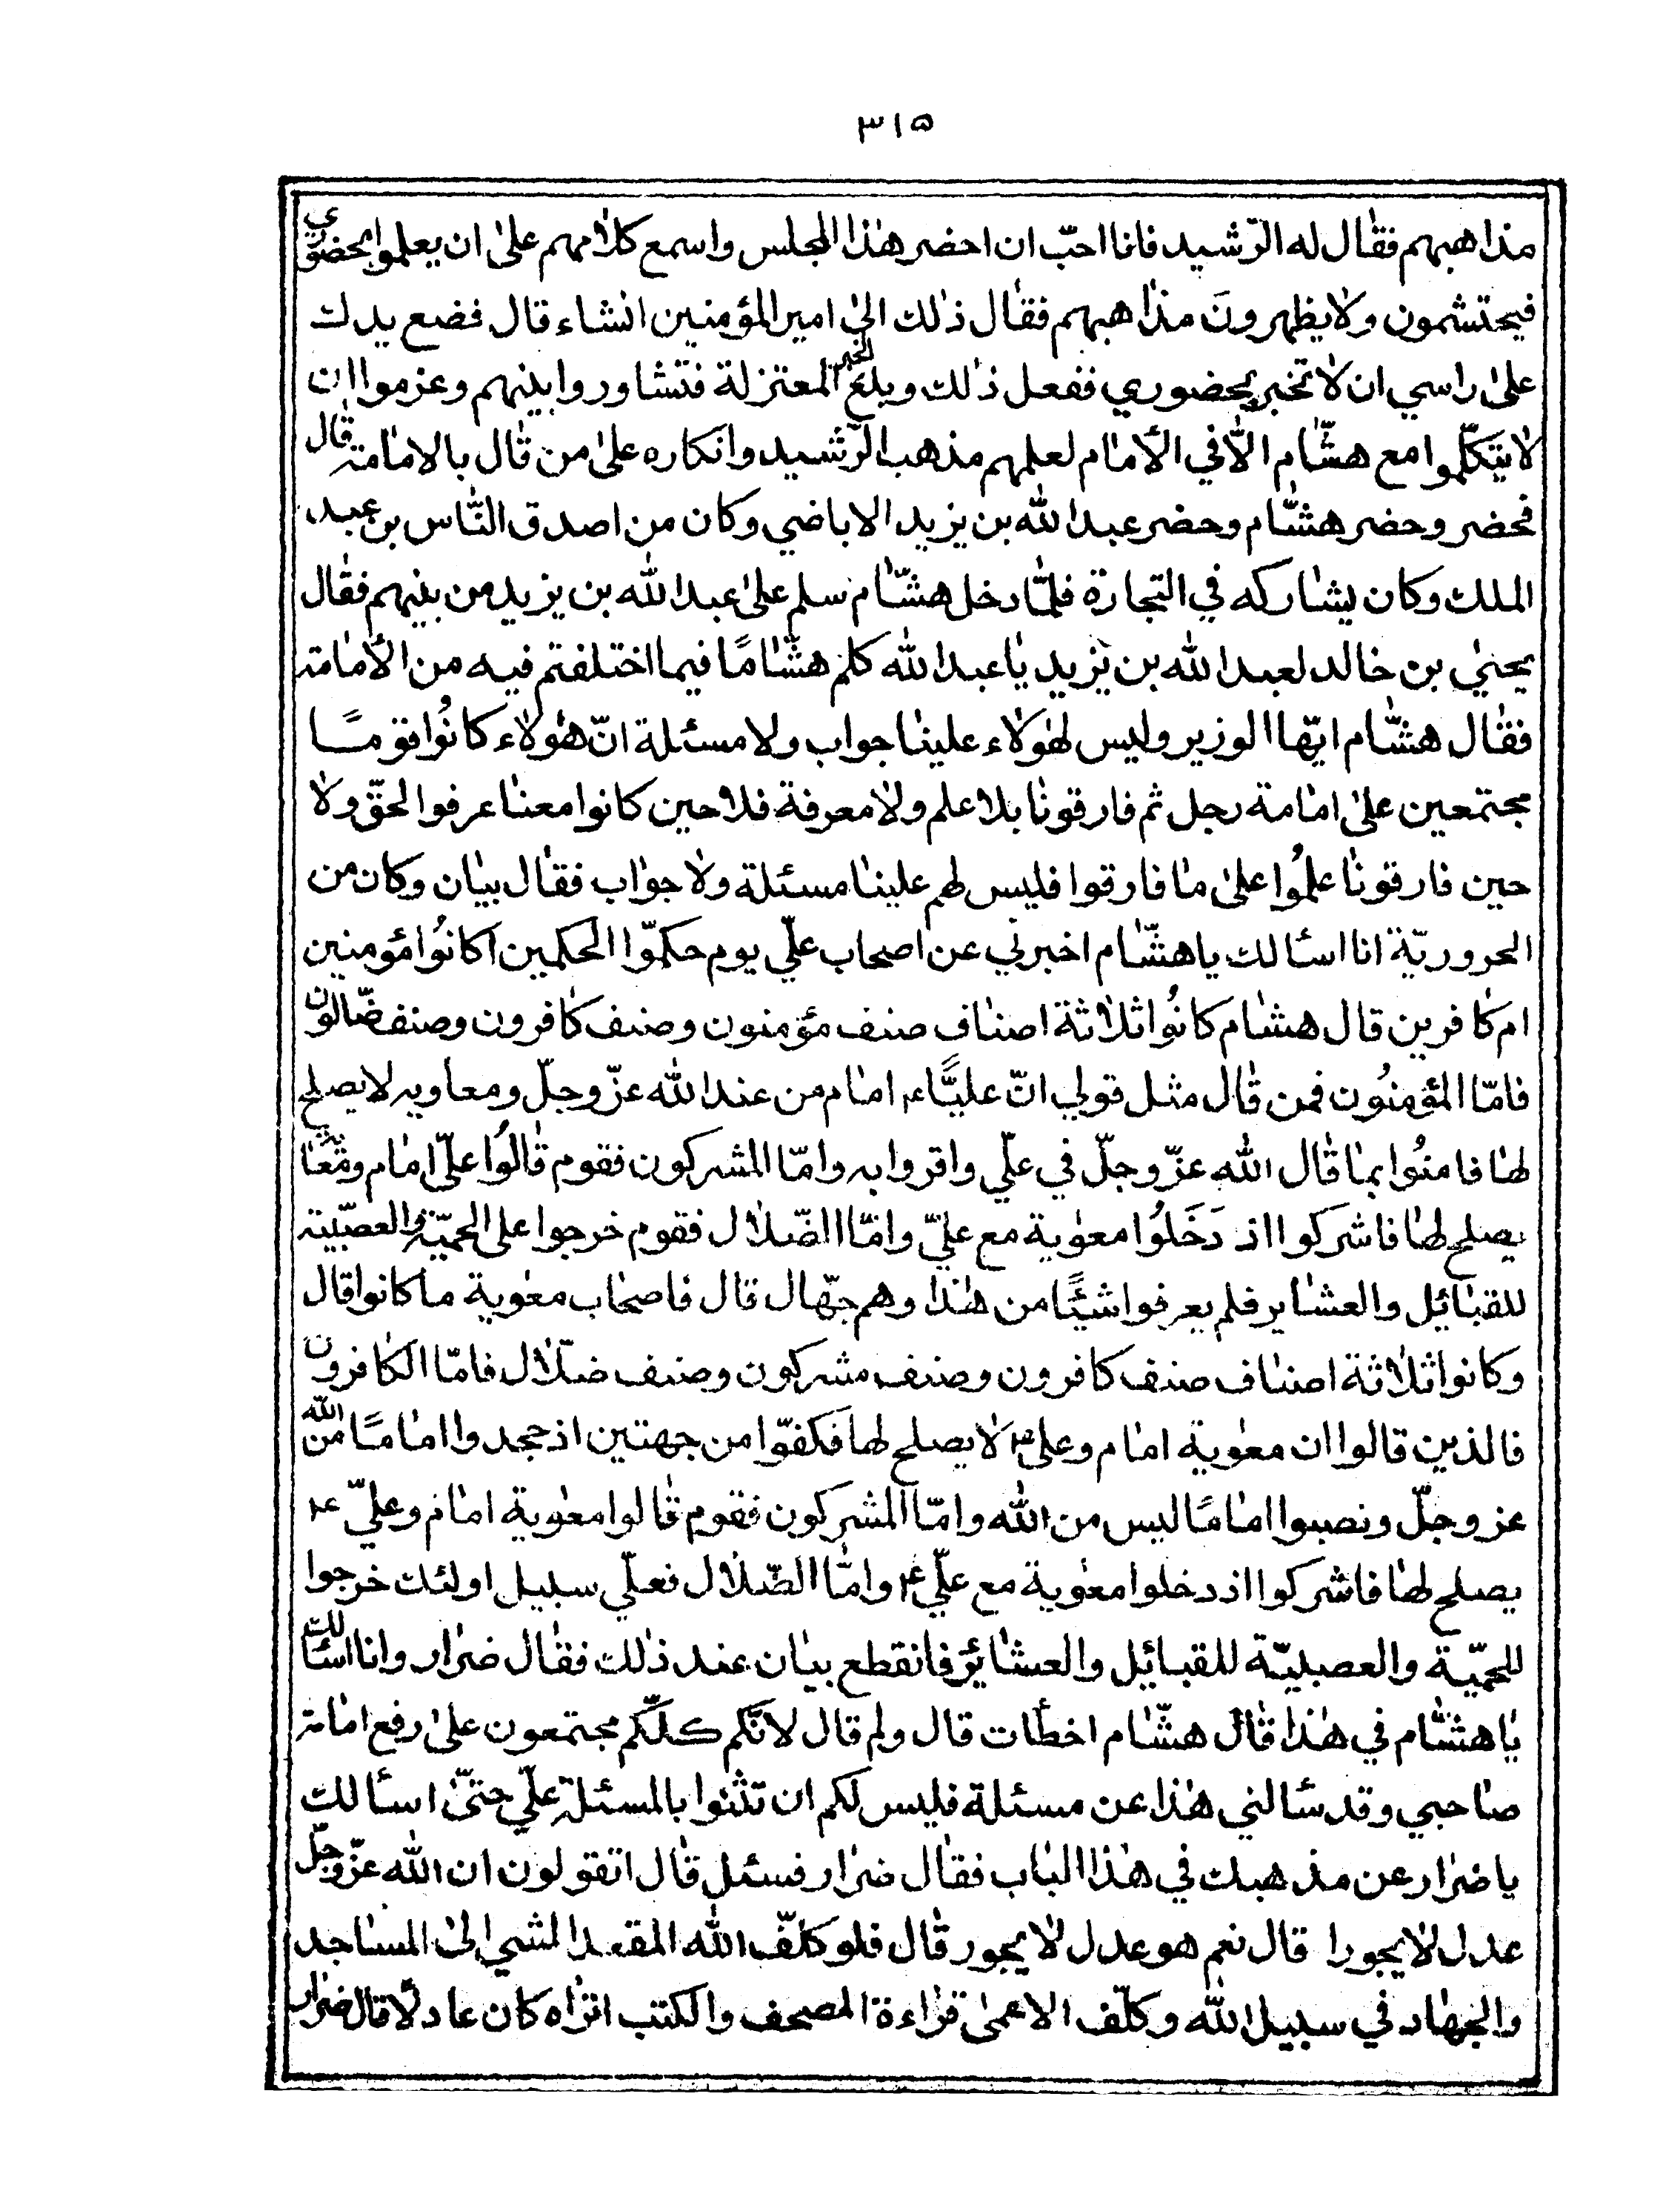 ٣١٥
مذاهبهم فقال له الرّشيد فانا احبّ ان احضر هذا المجلس واسمع كلامهم على ان يعلموا بحضوري
فيحتشمون ولا يظهرونَ مذاهبهم فقال ذلك الى امير المؤمنين انشاء قال فضع يدك
على راسي ان لا تخبر بحضوري ففعل ذلك وبلغ الخبر المعتزلة فتشاوروا بينهم وعزموا ان
لا يتكلّموا مع هشّام الّا في الأمام لعلمهم مذهب الرّشيد وانكاره على من قال بالامامة قال
فحضر وحضر هشّام وحضر عبد الله بن يزيد الاباضي وكان من اصدق النّاس بن عبد
الملك وكان يشاركه في التجارة فلمّا دخل هشّام سلم على عبد الله بن يزيد من بينهم فقال
يحيي بن خالد لعبد الله بن يزيد يا عبد الله كلم هشّامًا فيما اختلفتم فيه من الأمامة
فقال هشّام ايّها الوزير وليس لهؤلاء علينا جواب ولا مسئلة انّ هؤلاء كانُوا قومًا
مجتمعين على امامة رجل ثم فارقونا بلا علم ولا معرفة فلا حين كانوا معنا عرفوا الحقّ ولا
حين فارقونا علمُوا على ما فارقوا فليس لهم علينا مسئلة ولا جواب فقال بيان وكان من
الحروريّة انا اسألك يا هشّام اخبرني عن اصحاب علّي يوم حكمّوا الحكمين أكانُوا مؤمنين
ام كافرين قال هشام كانُوا ثلاثة اصناف صنف مؤمنون وصنف كافرون وصنف ضّالون
فامّا المؤمنُون فمن قال مثل قولي انّ عليًّا ع امام من عند الله عزّ وجلّ ومعاويه لا يصلح
لها فامنُوا بما قال الله عزّ وجلّ في علّي واقروا به وامّا المشركون فقوم قالُوا علّي امام ومعٰوية
يصلح لها فاشركوا اذ دَخَلُوا معٰوية مع عليّ وامّا الضّلال فقوم خرجوا على الحميّة والعصّبية
للقبائِل والعشاير فلم يعرفوا شيئًا من هذا وهم جهّال قال فاصحاب معٰوية ما كانوا قال
وكانوا ثلاثة اصناف صنف كافرون وصنف مشركون وصنف ضلّال فامّا الكافرون
فالذين قالوا ان معٰوية امام وعلى ع لا يصلح لها فَكفرّوا من جهتين اذ جحدوا امامًا من الله
عز وجلّ ونصبوا امامًا ليس من الله وامّا المشركون فقوم قالوا معٰوية امام وعليّ ع
يصلح لها فاشركوا اذ دخلوا معٰوية مع علّي ع وامّا الضّلال فعلّي سبيل اولئك خرجوا
للحميّة والعصبيّة للقبائِل والعشائِر فانقطع بيان عند ذلك فقال ضرار وانا اسئلك
يا هشّام في هذا قال هشّام اخطأت قال ولم قال لانّكم كلّكم مجتمعون على رفع امامة
صاحبي وقد سألني هذا عن مسئلة فليس لكم ان تثنوا بالمسئلة علّي حتىّ اسألك
يا ضرار عن مذهبك في هذا الباب فقال ضرار فسئل قال اتقولون ان الله عزّ وجلّ
عدل لا يجورا قال نعم هو عدل لا يجور قال فلو كلّف الله المقعد المشي الى المساجد
والجهاد في سبيل الله وكلّف الاعمى قراءة المصحف والكتب اتراه كان عادلًا قال ضرار